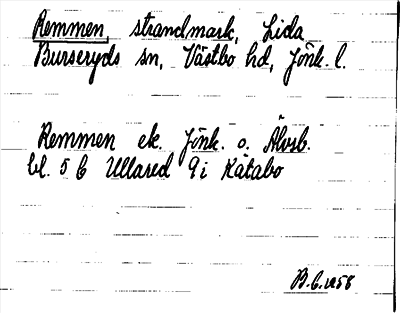 Remmen strandmark, Lida
Burseryds sn, Västbo hd, Jönk. l.
Remmen ek. Jönk. o. Älvsb.
bl. 5 C Ullared 9 i Kåtabo
B.C. 1958